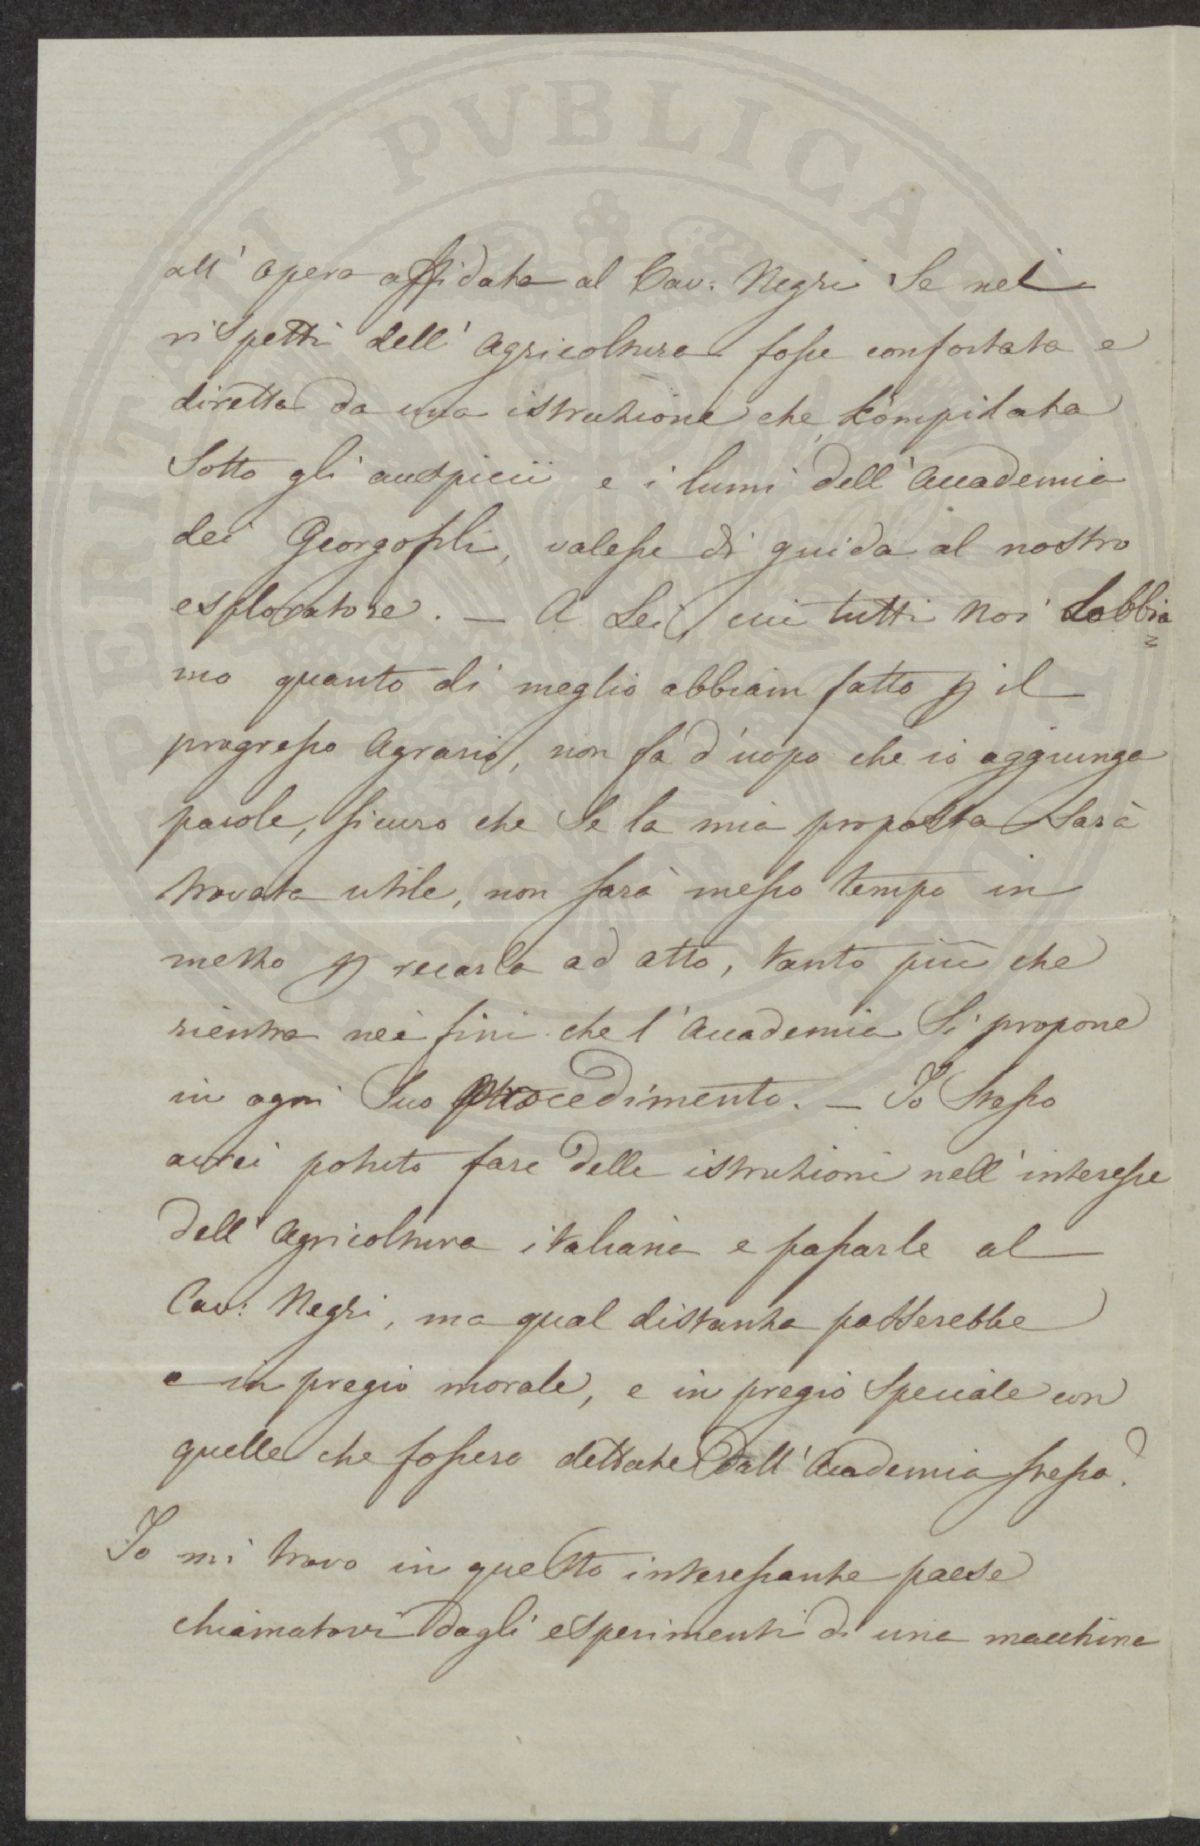 PROSPERITATI PVBLICAE AVGENDAE
all' opera affidata al Cav: Negri se nei
rispetti dell' agricoltura fosse confortata e
diretta da una istruzione che, compilata
sotto gli auspicii e i lumi dell' Accademia
dei Georgofili, valesse di guida al nostro
esploratore. — A Lei, cui tutti noi dobbia
mo quanto di meglio abbiam fatto p il
progresso Agrario, non fa d'uopo che io aggiunga
parole, sicuro che se la mia proposta sarà
trovata utile, non sarà messo tempo in
mezzo p recarla ad atto, tanto più che
rientra nei fini che l' Accademia si propone
in ogni suo procedimento. — Io stesso
avrei potuto fare delle istruzioni nell' interesse
dell' Agricoltura italiana e passarle al
Cav: Negri, ma qual distanza passerebbe
e in pregio morale, e in pregio speciale con
quelle che fossero dettate dall' Accademia stessa?
Io mi trovo in questo interessante paese
chiamatovi dagli esperimenti di una macchina